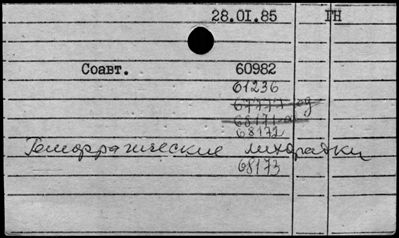 28.01.85 ГН
Соавт. 60982
61236
67777-ад
68171-а
68172
Геморрагические лихорадки
68173